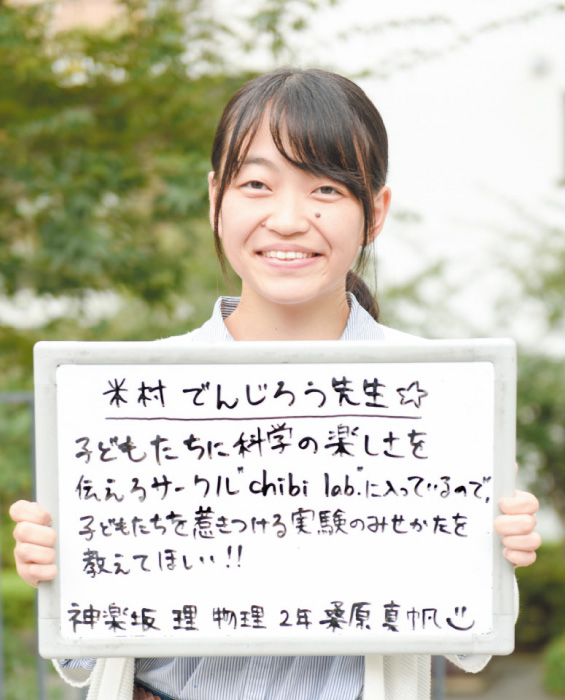 米村 でんじろう先生☆
子どもたちに科学の楽しさを
伝えるサークル"chibi lab."に入っているので、
子どもたちを惹きつける実験のみせかたを
教えてほしい!!
神楽坂 理 物理 2年 桑原真帆